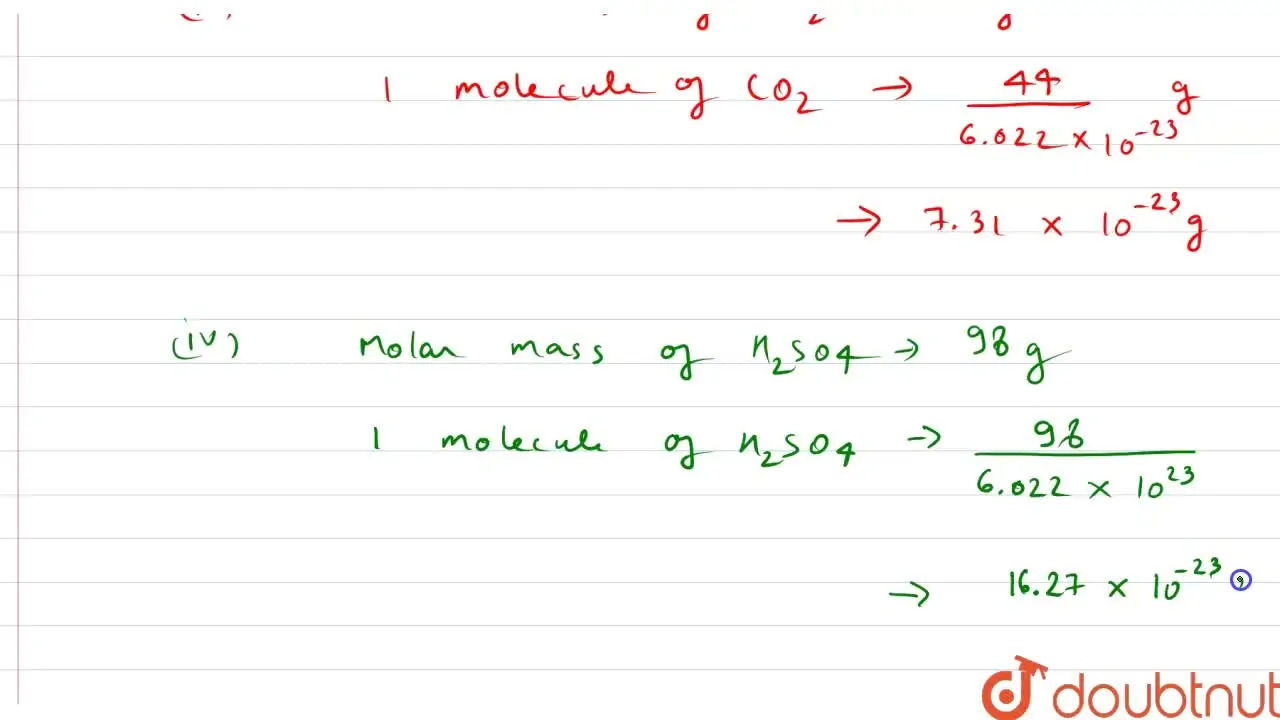 1 molecule of CO2 → 44 / 6.022 × 10^-23 g
→ 7.31 × 10^-23 g
(iv) Molar mass of H2SO4 → 98 g
1 molecule of H2SO4 → 98 / 6.022 × 10^23
→ 16.27 × 10^-23 g
doubtnut